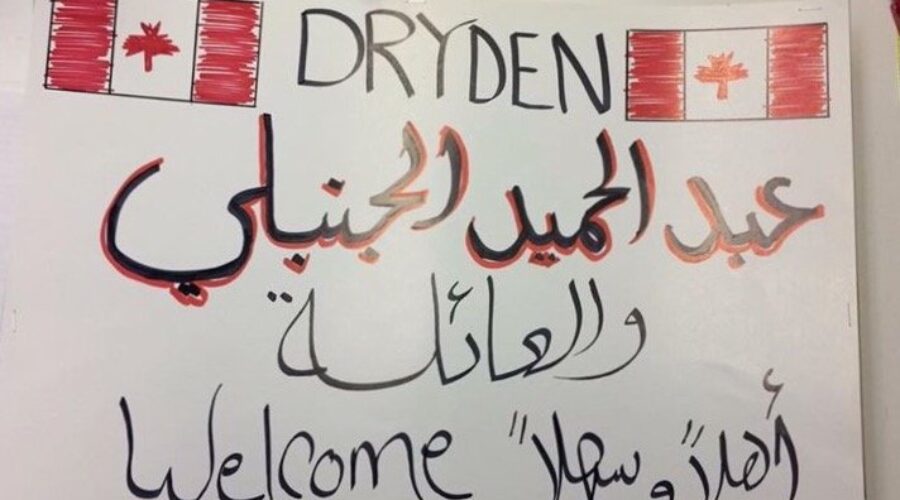 DRYDEN
عبد الحميد الجنبلي
والعائلة
Welcome أهلاً وسهلاً